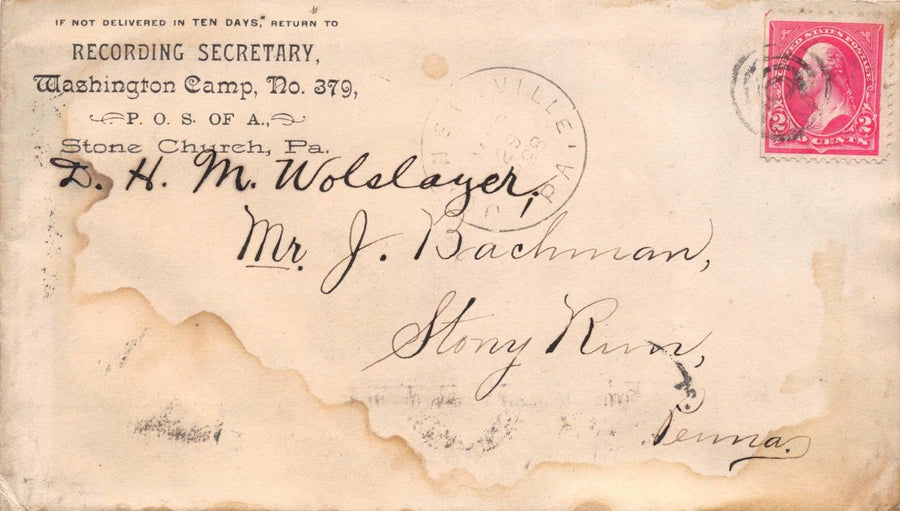 IF NOT DELIVERED IN TEN DAYS, RETURN TO
RECORDING SECRETARY,
Washington Camp, No. 379,
P. O. S. OF A.,
Stone Church, Pa.
D. H. M. Wolslayer,
Mr. J. Bachman,
Stony Run,
Penna.
VILLE
PA
UNITED STATES POSTAGE
2 CENTS 2